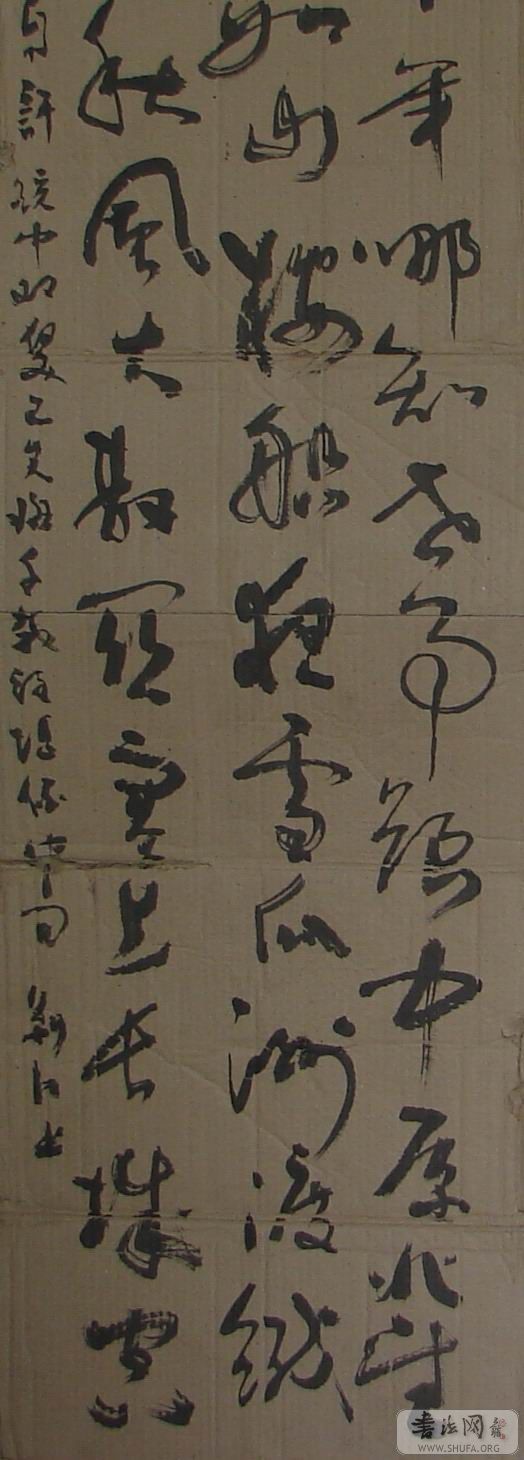 年哪知世事艰中原北望
如山楼船夜雪瓜洲渡鐵
秋風大散関塞上長城空
自許鏡中衰鬓已先斑千載誰堪伯仲间 书
書法网
WWW.SHUFA.ORG